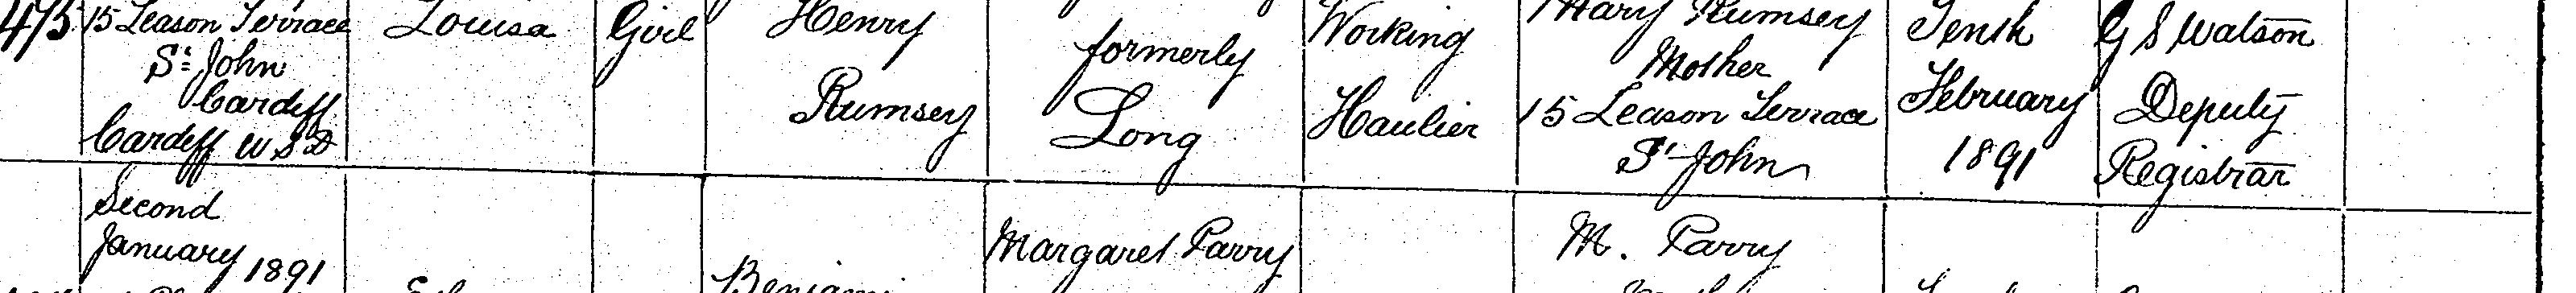 473 15 Leason Terrace Louisa Girl Henry Working Mary Rumsey Tenth G S Watson
St John formerly Mother
Cardiff Rumsey Long Haulier 15 Leason Terrace February Deputy
Cardiff W S D St John 1891 Registrar
Second
January 1891 Margaret Parry M. Parry